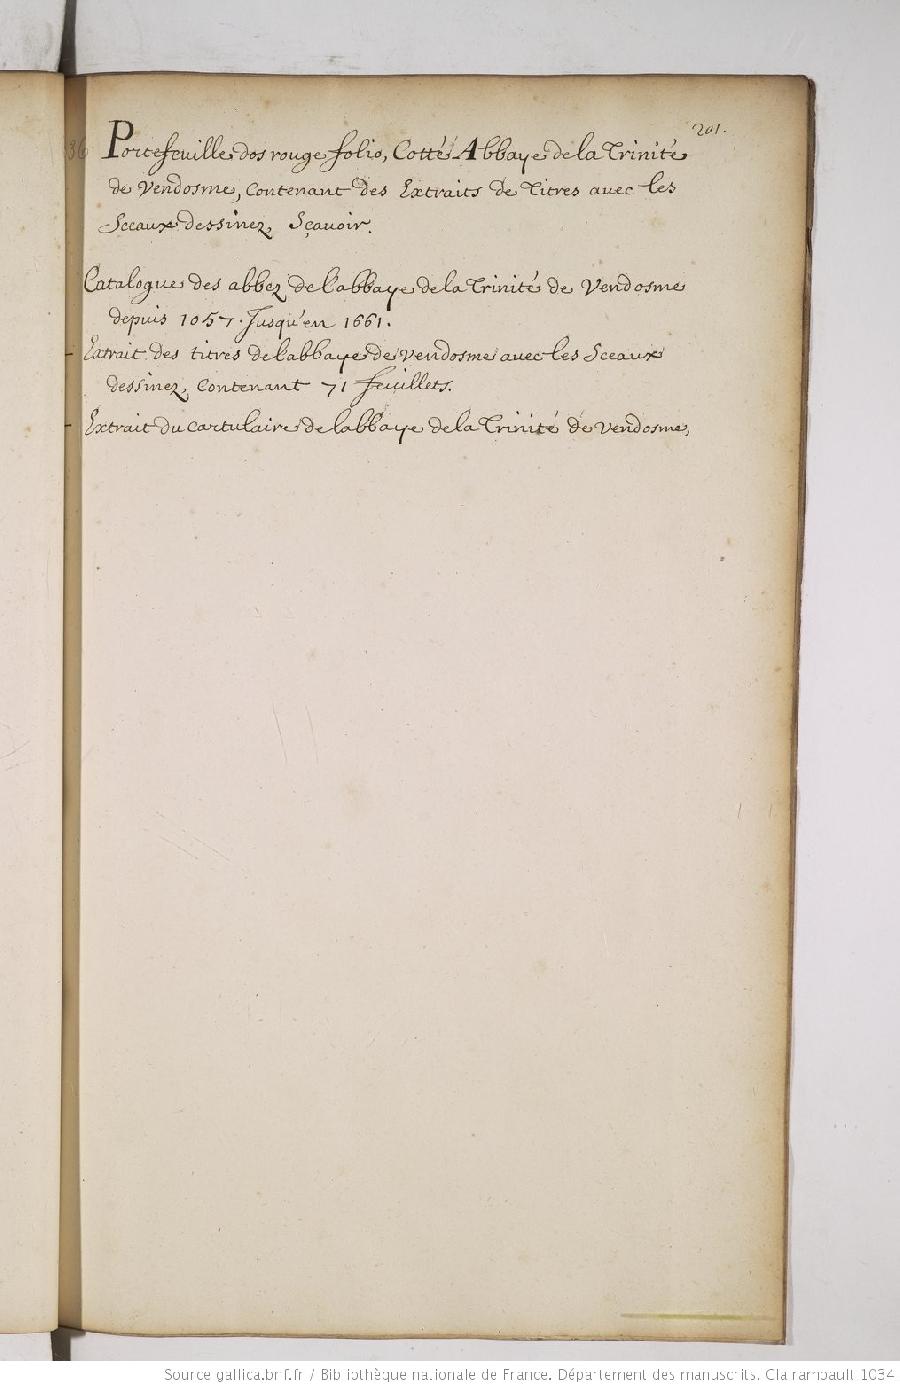 201.
36 Portefeuille dos rouge folio, Cotté Abbaye de la Trinité
de Vendosme, contenant des Extraits de Titres avec les
Sceaux dessinez, Sçavoir.
Catalogue des abbez de l'abbaye de la Trinité de Vendosme
depuis 1057. Jusqu'en 1661.
- Extrait des titres de l'abbaye de Vendosme avec les Sceaux
dessinez, contenant 71 feuillets.
- Extrait du cartulaire de l'abbaye de la Trinité de Vendosme,
Source gallica.bnf.fr / Bibliothèque nationale de France. Département des manuscrits. Clairambault 1034